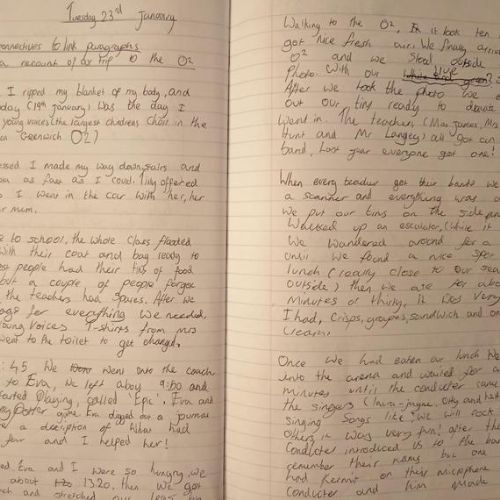 Tuesday 23rd January
connectives to link paragraphs
a recount of our trip to the O2
I ripped my blanket of my body, and
day (19th January) was the day I
young voices (the largest childrens choir in the
Greenwich O2)
essed I made my way downstairs and
as fast as I coud. Tilly offered
I went in the car with her, her
mum.
to school, the whole class flooded
with their coat and bag ready to
ost people had their tins of food
but a couple of people forgot
the teachers had spares. After we
ags for everything we needed,
oung voices T-shirts from Mrs
went to the toilet to get changed.
:45 we went into the coach
to Eva, we left aboy 9:60 and
tarted playing, called 'Epic'. Eva and
Potter game Eva digged out a journal
a description of
far and I helped her!
Eva and I were so hungry, we
about 1320, then we got
and stretched our legs
Walking to the O2, it took ten
got nice fresh air. We finally arriv
O2 and we stood outside
Photo with our blue
After we took the photo we
out our tins ready to donate
went in. The teachers (Miss James, Mrs
Hunt and Mr Langley) all got an
band, Last year everyone got one!
When every teacher got their bands we
a scanner and everything was
we put our tins on the side
Walked up an escalator, (while it
We wandered around for a
until we found a nice spot
lunch (really close to our sea
outside) then we ate for abo
minutes or thirty, it was very
I had, crisps, grapes, sandwich and
Once we had eaten our lunch we
into the arena and waited for a
minutes until the conducter came
the singers
singing songs like: We will rock
others, it was very fun! after the
Conducter introduced us to the ban
remember their names but one
had Kermit on their micraphone
Conducter and him made